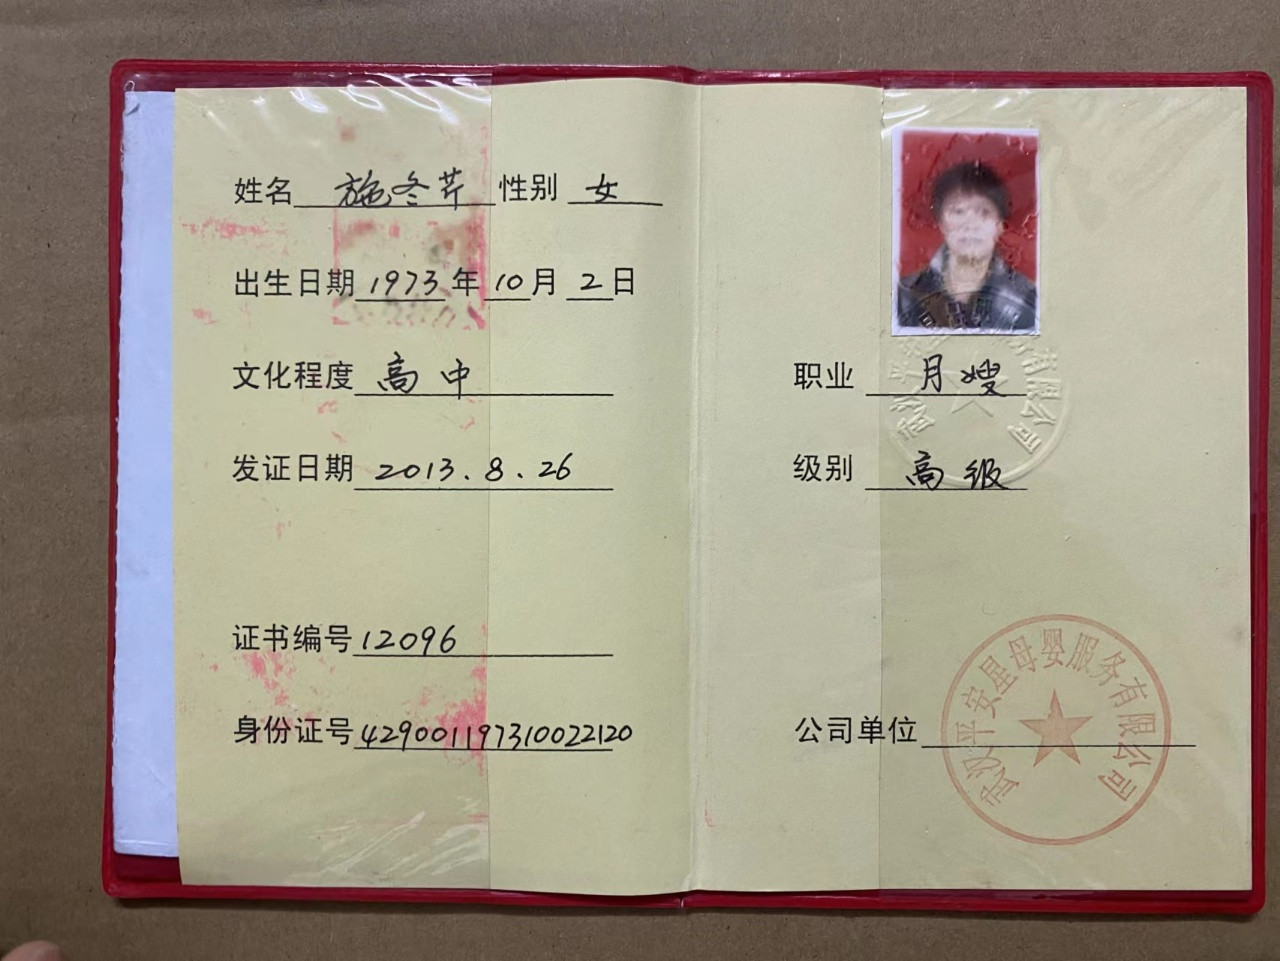 姓名 施冬芹 性别 女
出生日期 1973 年 10 月 2 日
文化程度 高中
发证日期 2013.8.26
证书编号 12096
身份证号 429001197310022120
职业 月嫂
级别 高级
公司单位
武汉平安星母婴服务有限公司